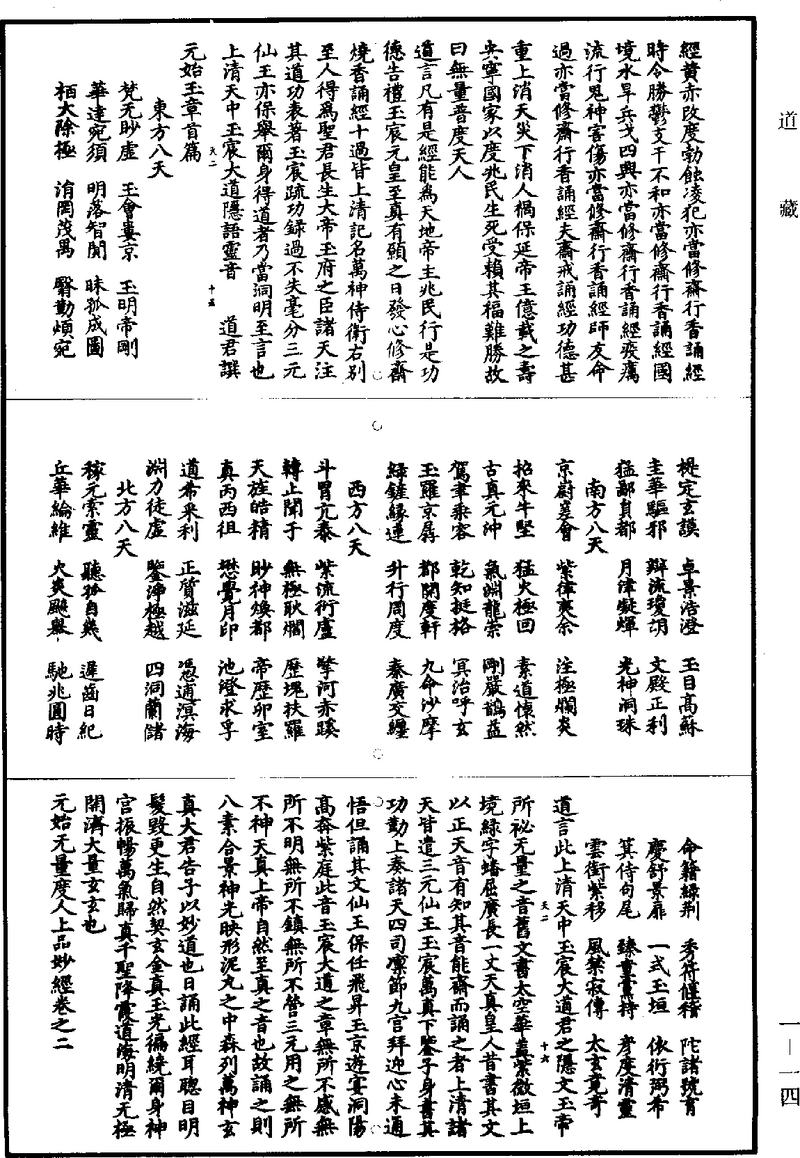 道藏
經黃赤改度勃蝕凌犯亦當修齋行香誦經
時令勝鬱支干不和亦當修齋行香誦經國
境水旱兵戈四興亦當修齋行香誦經疫癘
流行鬼神害傷亦當修齋行香誦經師友命
過亦當修齋行香誦經夫齋戒誦經功德甚
重上消天災下消人禍保延帝王億載之壽
安寧國家以度兆民生死受賴其福難勝故
曰無量普度天人
道言凡有是經能為天地帝主兆民行是功
德告禮玉宸元皇至真有願之日發心修齋
燒香誦經十過皆上清記名萬神侍衛右別
至人得為聖君長生大帝玉府之臣諸天注
其道功表著玉宸疏功録過不失毫分三元
仙王亦保舉爾身得道者乃當洞明至言也
上清天中玉宸大道隱語靈音 道君譔
天二 十五
元始玉章首篇
東方八天
梵无眇虛 玉會婁京 玉明帝剛
華達宛須 明落智閒 昧狐成圖
栢大除極 洧罔茂禺 翳勤煩宛
榥定玄謨 卓景浩澄 玉目高穌
圭華驅邪 辯流瓊胡 文殿正利
猛鄙負都 月律凝輝 光神洞珠
南方八天
京尉㚇會 紫律奭余 注極爛炎
招來牛堅 猛火極回 素道悚然
古真元沖 氣淵龍崇 剛嚴鵲益
駕聿乘容 乾知挺格 冥治呼玄
玉羅京孱 鄀開度軒 九命沙摩
緑鏟緣連 升行周度 秦廣交纏
西方八天
斗胃亢泰 紫流衍盧 擎河赤蹊
轉止聞于 無極耿爛 歷塊扶羅
天旌皓精 眇神煥都 帝歷卯室
真丙西徂 懋覺月印 池澄求孚
道希釆利 正質滋延 憑逋溟海
淵力徒虛 鑒淨極越 四洞蘭諸
北方八天
稼元索靈 聽孙自幾 遲齒日紀
丘華綸維 火炎飈舉 馳兆圓時
命籍緑荆 秀符偃稽 陀諸號育
慶舒景扉 一式玉垣 依術弼希
箕侍句尾 臻重棠持 身度清靈
雲衝紫移 風禁寂傳 太玄竟奇
道言此上清天中玉宸大道君之隱文玉帝
天二 十六
所祕无量之音舊文書太空華蓋紫微垣上
境緑字蟠屈廣長一丈天真皇人昔書其文
以正天音有知其音能齋而誦之者上清諸
天皆遣三元仙王玉宸萬真下鑒子身書其
功勤上奏諸天四司凛節九宮拜迎心未通
悟但誦其文仙王保任飛昇玉京遊宴洞陽
高奔紫庭此音玉宸大道之章無所不感無
所不明無所不鎮無所不營三元用之無所
不神天真上帝自然至真之音也故誦之則
八素合景神光映形泥丸之中森列萬神玄
真大君告子以妙道也日誦此經耳聰目明
髮毀更生自然契玄金真玉光徧繞爾身神
宮振暢萬氣歸真千聖降霞道海明清无極
開濟大量玄玄也
元始无量度人上品妙經卷之二
一—一四